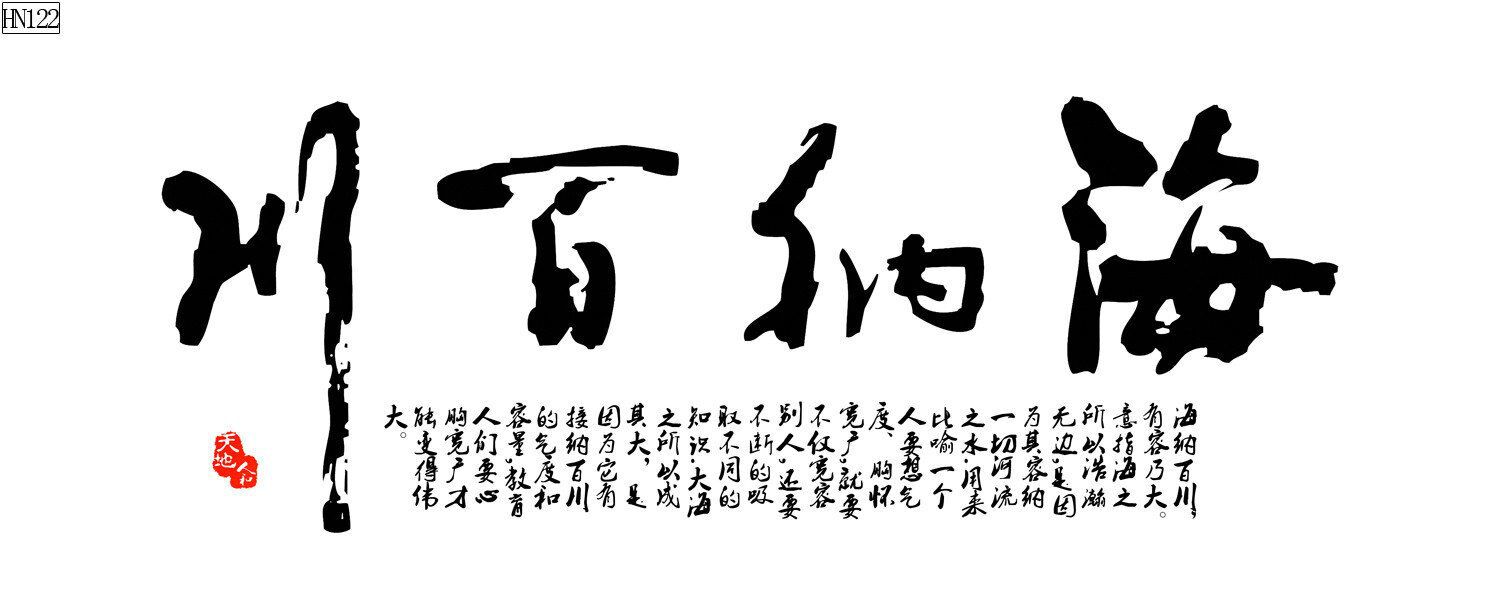 HN122
海纳百川
海纳百川，
有容乃大。
意指海之
所以浩瀚
无边,是因
为其容纳
一切河流
之水,用来
比喻一个
人要想气
度、胸怀
宽广,就要
不仅宽容
别人,还要
不断的吸
取不同的
知识,大海
之所以成
其大，是
因为它有
接纳百川
的气度和
容量,教育
人们要心
胸宽广才
能变得伟
大。
天地
人和